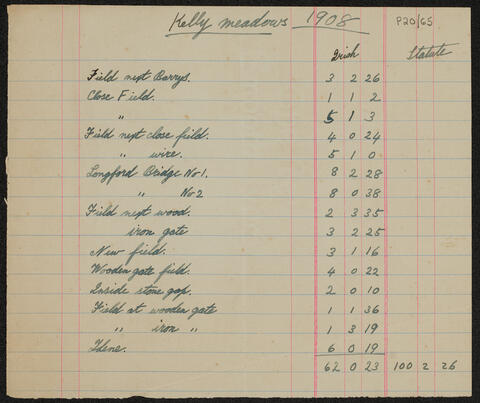 Kelly meadows 1908 P20/65
Irish Statute
Field next Barrys. 3 2 26
Close Field. 1 1 2
" 5 1 3
Field next close field. 4 0 24
" wire. 5 1 0
Longford Bridge No 1. 8 2 28
" No 2 8 0 38
Field next wood. 2 3 35
iron gate 3 2 25
New field. 3 1 16
Wooden gate field. 4 0 22
Inside stone gap. 2 0 10
Field at wooden gate 1 1 36
" iron " 1 3 19
6 0 19
62 0 23 100 2 26